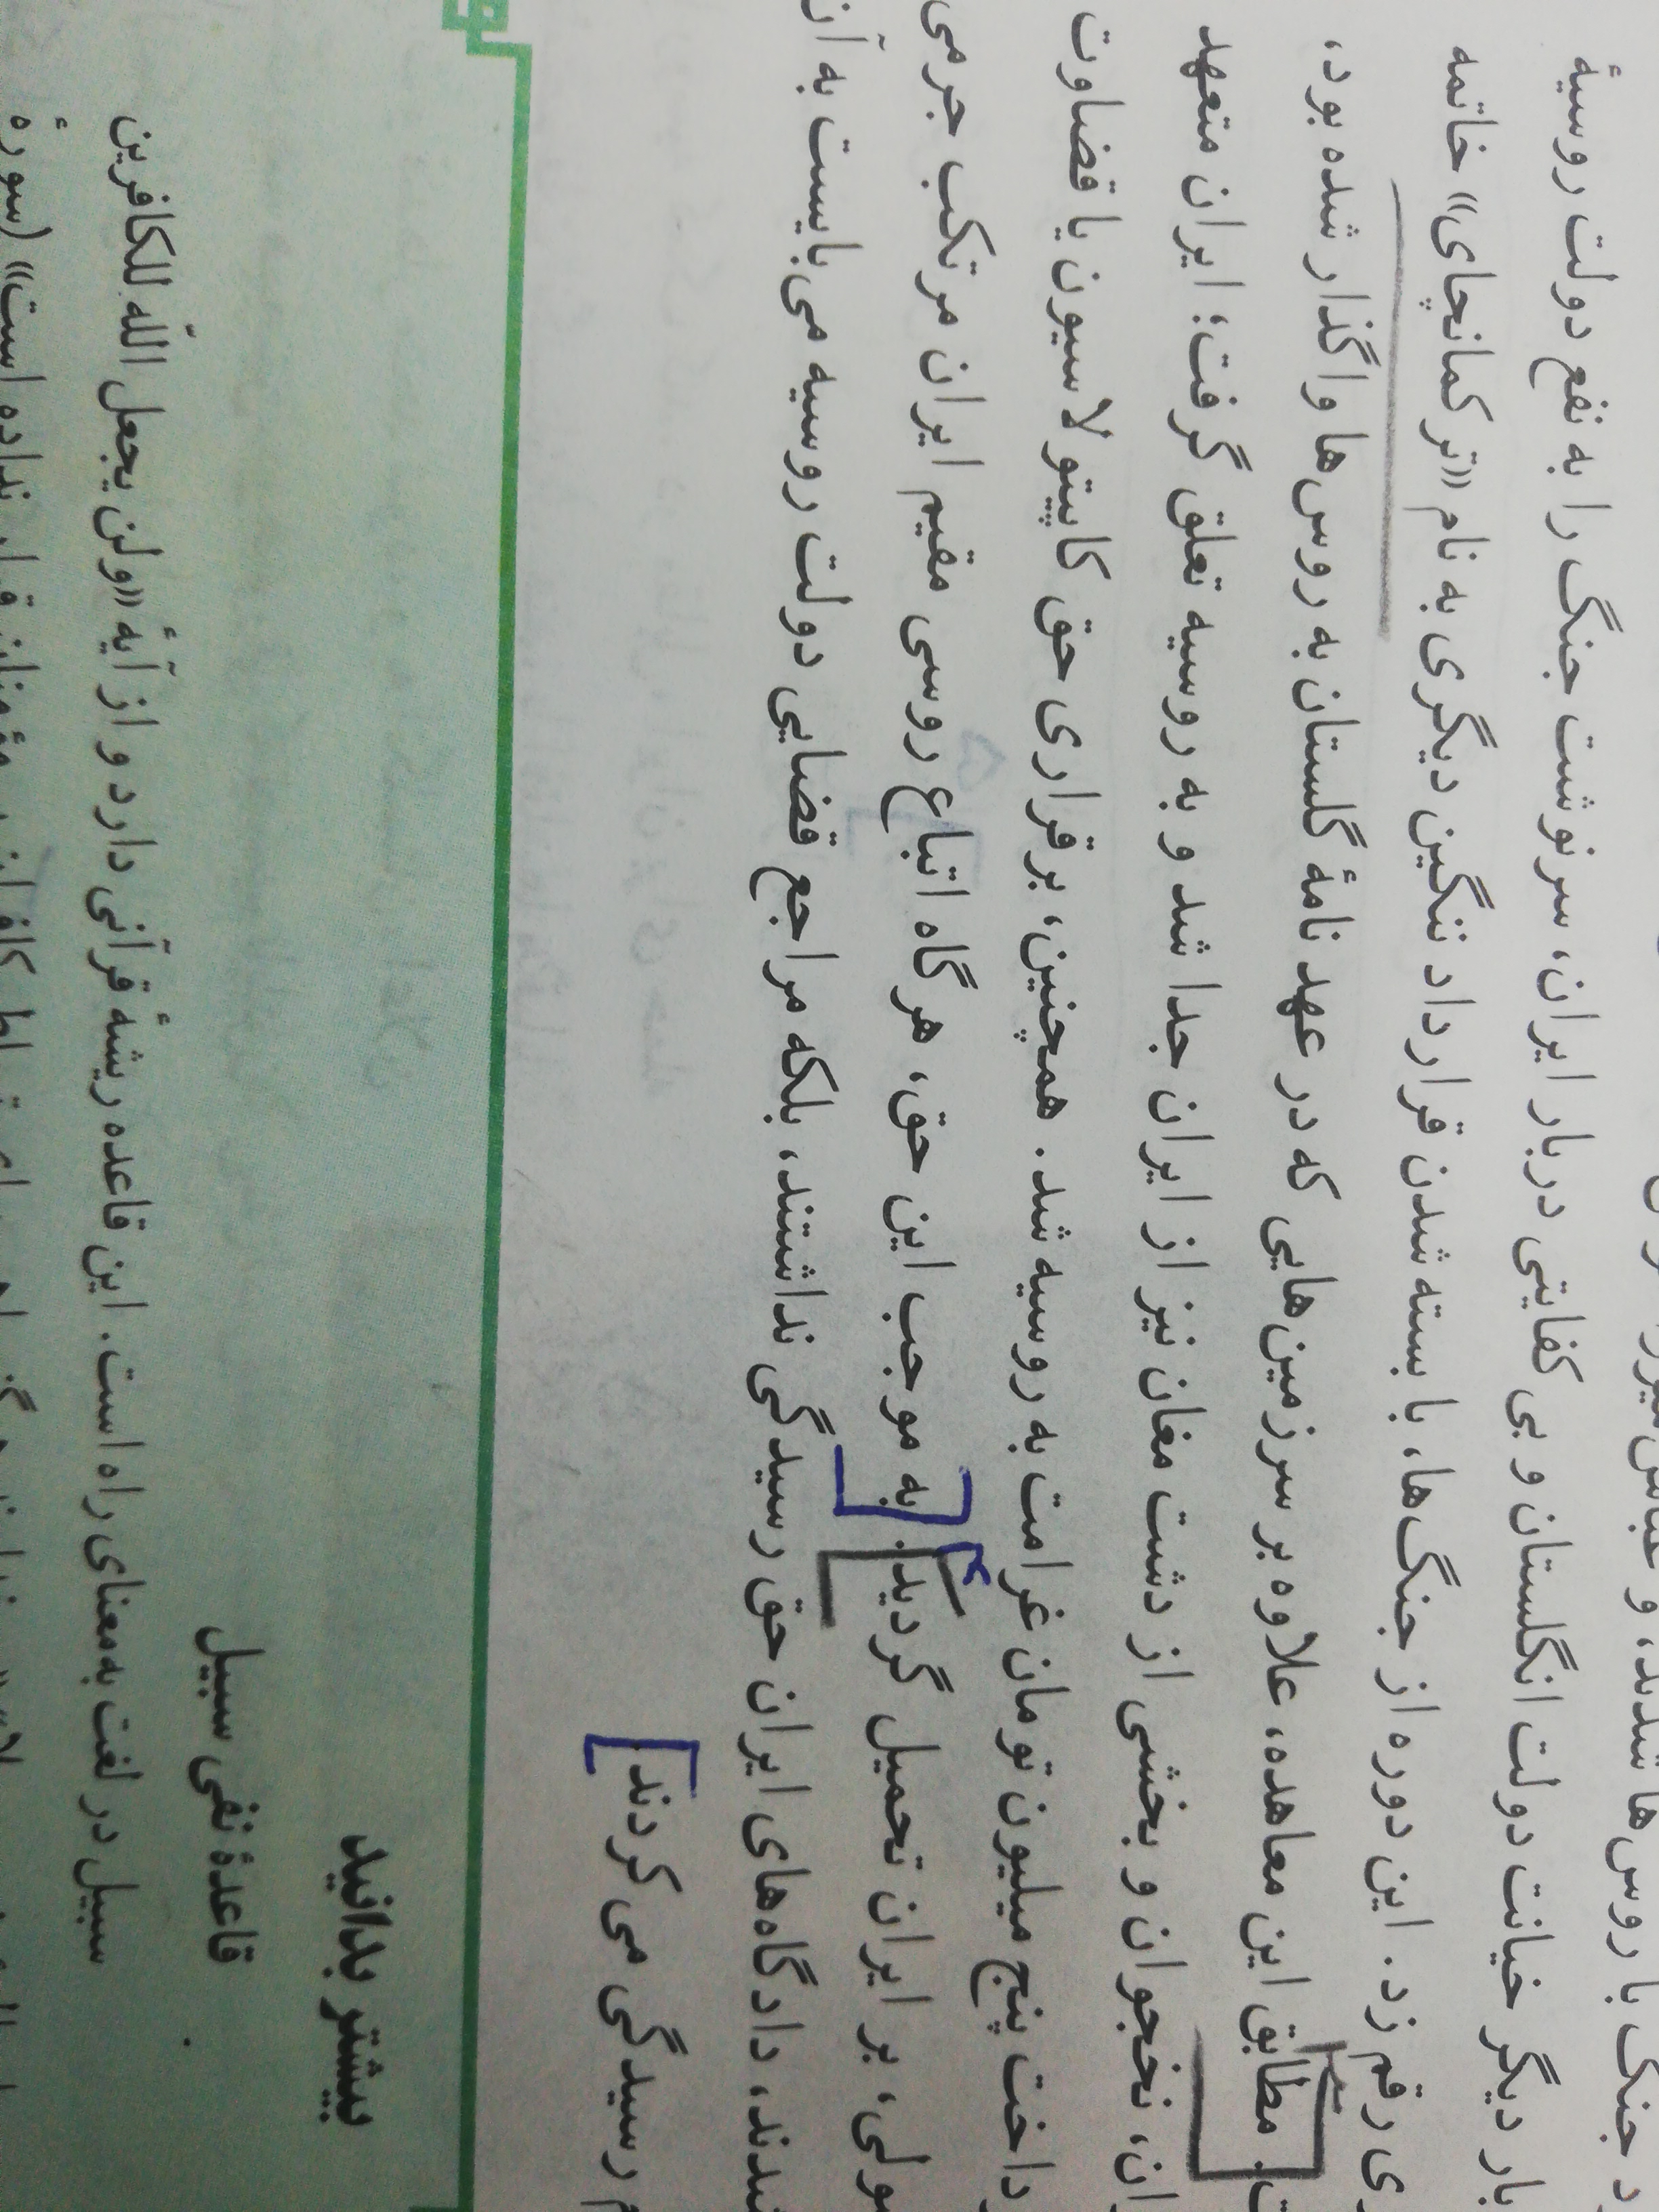 جنگ با روس‌ها شدند، و عباس
بار دیگر خیانت دولت انگلستان و بی کفایتی دربار ایران، سرنوشت جنگ را به نفع دولت روسیهٔ
ی رقم زد. این دوره از جنگ‌ها، با بسته شدن قرارداد ننگین دیگری به نام «ترکمانچای» خاتمه
ت. مطابق این معاهده، علاوه بر سرزمین‌هایی که در عهدنامهٔ گلستان به روس‌ها واگذار شده بود،
ان، نخجوان و بخشی از دشت مغان نیز از ایران جدا شد و به روسیه تعلق گرفت؛ ایران متعهد
داخت پنج میلیون تومان غرامت به روسیه شد. همچنین، برقراری حق کاپیتولاسیون یا قضاوت
ولی، بر ایران تحمیل گردید. به موجب این حق، هرگاه اتباع روسی مقیم ایران مرتکب جرمی
شدند، دادگاه‌های ایران حق رسیدگی نداشتند، بلکه مراجع قضایی دولت روسیه می‌بایست به آن
م رسیدگی می‌کردند.
بیشتر بدانید
قاعدهٔ نفی سبیل
سبیل در لغت به معنای راه است. این قاعده ریشهٔ قرآنی دارد و از آیهٔ «ولن یجعل اللّه للکافرین
نداده است» (سورهٔ